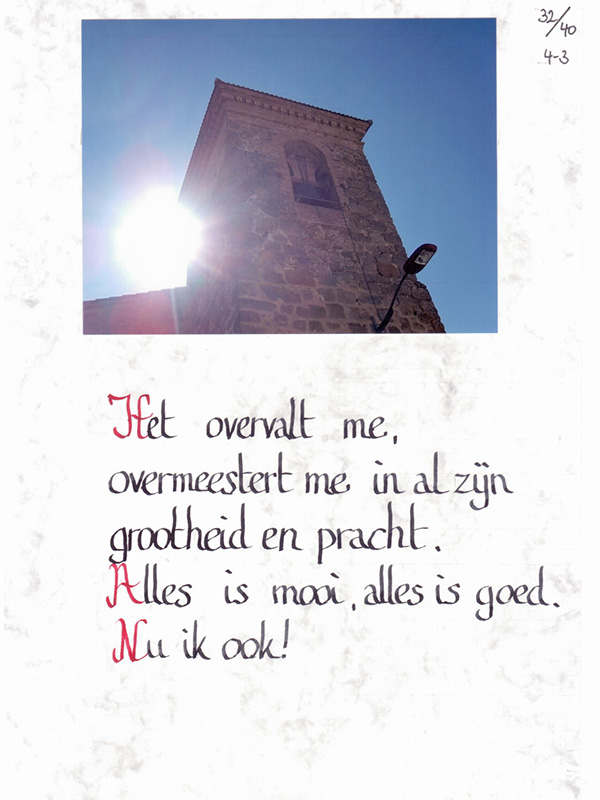 32/40
4-3
Het overvalt me,
overmeestert me in al zijn
grootheid en pracht.
Alles is mooi, alles is goed.
Nu ik ook!